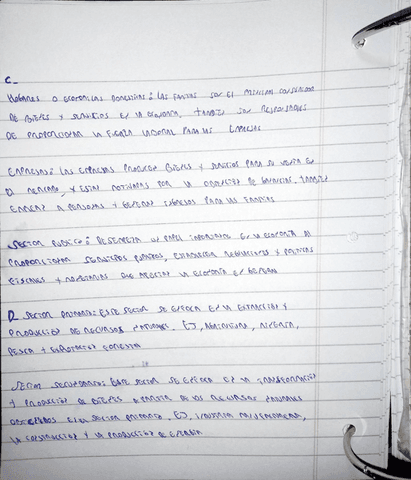 C_
Hogares o economicas domesticas: las familias son el principal consumidor
de bienes y servicios en la economia, tambien son responsables
de proporcionar la fuerza laboral para las empresas
Empresas: las empresas producen bienes y servicios para su venta en
el mercado, y estan motivadas por la obtencion de ganancias, tambien
emplean a personas y generan ingresos para las familias
Sector publico: Desempeña un papel importante en la economia al
proporcionar servicios publicos, establecer regulaciones y politicas
fiscales y monetarias que afectan la economia en general
D_ Sector primario: Este sector se enfoca en la extraccion y
produccion de recursos naturales. Ej, agricultura, mineria,
pesca y explotacion forestal
Sector secundario: Este sector se enfoca en la transformacion
y produccion de bienes a partir de los recursos naturales
obtenidos en el sector primario. Ej, industria manufacturera,
la construccion y la produccion de energia